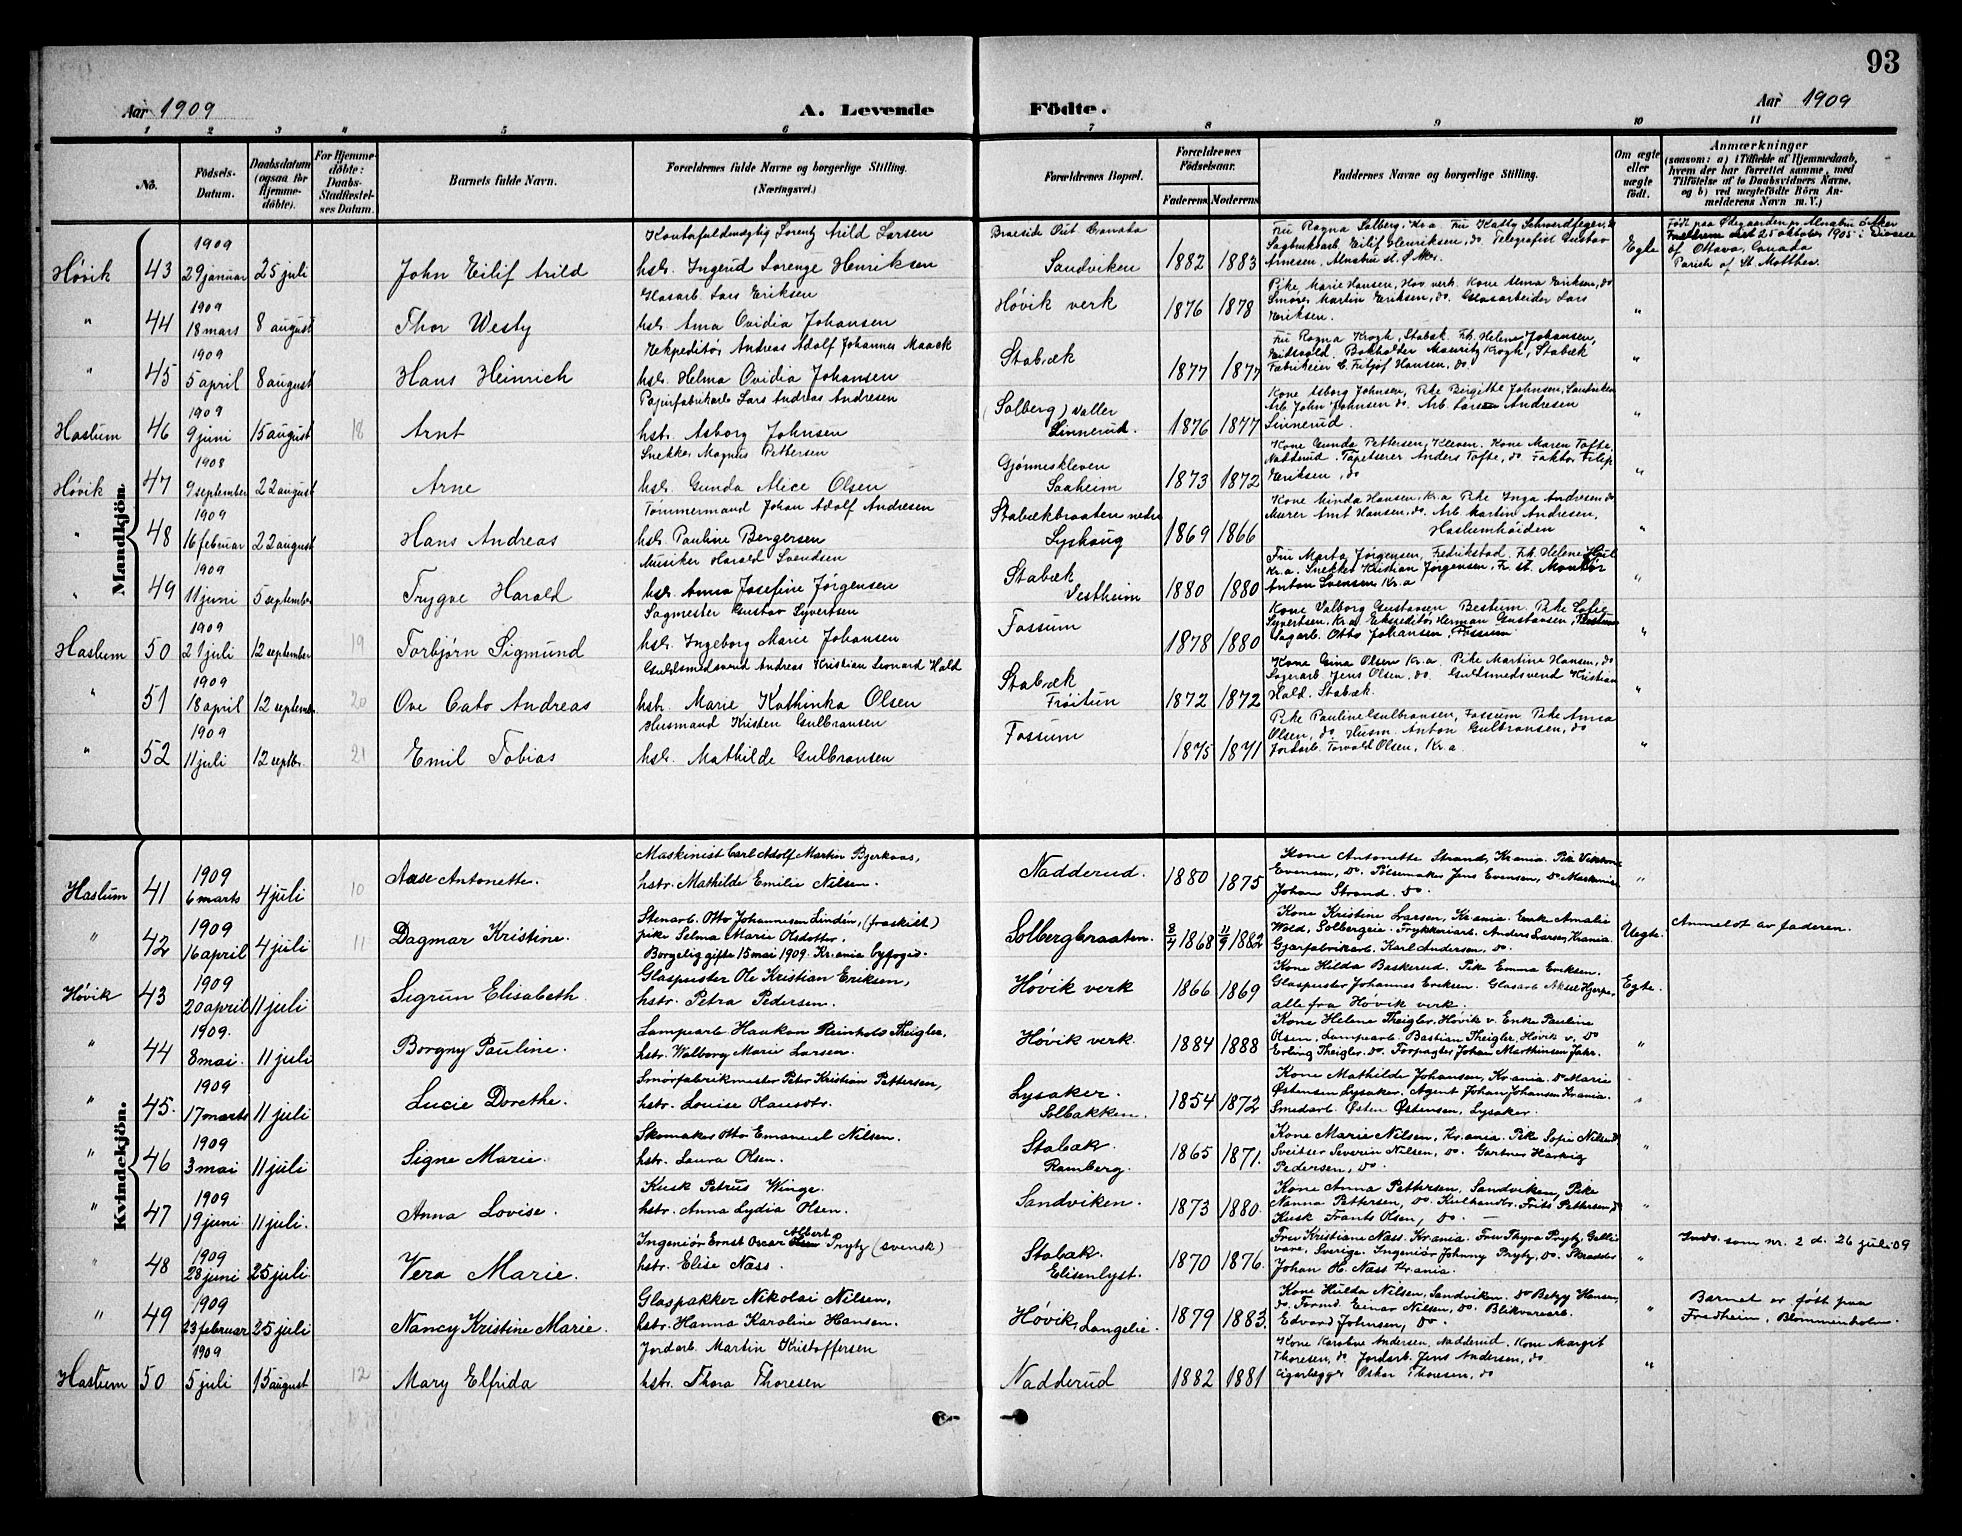 93
Aar 1909
A. Levende Födte.
Aar 1909
1 2 3 4 5 6 7 8 9 10 11
No.
Födsels-Datum.
Daabsdatum (ogsaa for Hjemme-döbte).
For Hjemme-döbte: Daabs-Stadfæstel-ses Datum.
Barnets fulde Navn.
Forældrenes fulde Navne og borgerlige Stilling.
(Næringsvei.)
Forældrenes Bopæl.
Forældrenes Födselsaar.
Faderens. Moderens.
Faddernes Navne og borgerlige Stilling.
Om ægte eller uægte födt.
Anmærkninger
(saasom: a) i Tilfælde af Hjemmedaab, hvem der har forrettet samme, med Tilföielse af to Daabsvidners Navne, og b) ved uægtefödte Börn An-melderens Navn m. V.)
Mandkjön.
Høvik 43 1909 29 januar 25 juli John Eilif Arild
Kontorfuldmægtig Lorentz Arild Larsen
hstr. Ingerid Lorenze Henriksen
Braeside Out Canada
Sandviken 1882 1883
Fru Ragna Solberg, Kr.a. Fru Katty
Sagbrukarb. Eilif Henriksen, do. Telegrafist Gustav
Arnesen, Alnabru st. Ø. Aker.
Egte
Født paa Ødegaarden pr Alnabru Ø Aker
25 oktober 1905 i Diocese
of Ottava, Canada
Parish of St. Matthew
" 44 1909 18 mars 8 august Thor Westy
Glasarb. Lars Eriksen
hstr. Anna Ovidia Johansen
Høvik verk 1876 1878
Pike, Marie Hansen, Høv. verk. Kone Alma Eriksen, do
Martin Eriksen, do. Glasarbeider Lars
Eriksen. "
" 45 1909 5 april 8 august Hans Heinrich
Ekspeditør Andreas Adolf Johannes Maack
hstr. Helma Ovidia Johansen
Stabæk 1877 1877
Fru Ragna Krogh, Stabæk. Frk. Helene Johansen,
Eidsvold. Bokholder Mauritz Krogh, Stabæk
Fabrikeier C. Fritjof Hansen, do. "
Haslum 46 1909 9 juni 15 august 18 Arnt
Papirfabrikarb. Lars Andreas Andresen
hstr. Asborg Johnsen
(Solberg) Valler
Sinnerud. 1876 1877
Kone Asborg Johnsen, Pike Birgitte Johnsen, Sandviken
Arb. John Johnsen do. Arb. Larsen Andresen
Sinnerud. "
Høvik 47 1908 9 september 22 august Arne
Snekker Magnus Pettersen
hstr. Gunda Alice Olsen
Gjønneskleven
Saaheim 1873 1872
Kone Gunda Pettersen, Kleven. Kone Maren Tofte,
Nadderud. Tapetserer Anders Tofte, do. Faktor Filip
Eriksen, do "
" 48 1909 16 februar 22 august Hans Andreas
Tømmermand Johan Adolf Andresen
hstr. Pauline Bergersen
Stabækbraaten nedre
Lyshaug 1869 1866
Kone Minda Hansen, Kr.a Pike Inga Andresen do
Murer Arnt Hansen, do. Arb. Martin Andresen,
Haslumhøiden "
" 49 1909 11 juni 5 september Trygve Harald
Musiker Harald Svendsen
hstr. Anna Josefine Jørgensen
Stabæk
Vestheim 1880 1880
Fru Marta Jørgensen, Fredrikstad. Frk. Helene
Kr.a. Snekker Kristian Jørgensen, Fr. st. Montør
Anton Svensen, Kr.a "
Haslum 50 1909 21 juli 12 september 19 Torbjørn Sigmund
Sagmester Gustav Syvertsen
hstr. Ingeborg Marie Johansen
Fossum 1878 1880
Kone Valborg Gustavsen Bestum. Pike Sofie
Syvertsen, Kr.a. Ekspeditør Herman Gustavsen, Bestum
Sagarb. Otto Johansen, Fossum "
" 51 1909 18 april 12 september 20 Ove Cato Andreas
Guldsmedsvend Andreas Kristian Leonard Hald
hstr. Marie Kathinka Olsen
Stabæk
Frøitun 1872 1872
Kone Gina Olsen Kr.a. Pike Martine Hansen, do
Jens Olsen, do. Guldsmedsvend Kristian
Hald, Stabæk. "
" 52 1909 11 juli 12 septbr. 21 Emil Tobias
Husmand Kristen Gulbransen
hstr. Mathilde Gulbransen
Fossum 1875 1871
Pike Pauline Gulbransen, Fossum Pike Anna
Olsen, do. Husm. Anton Gulbransen, do
Jordarb. Torvald Olsen, Kr.a. "
Kvindekjön.
Haslum 41 1909 6 marts 4 juli 10 Aase Antonette.
Maskinist Carl Adolf Martin Bjerkaas,
hstr. Mathilde Emilie Nilsen.
Nadderud. 1880 1875
Kone Antonette Strand, Kr.ania. Pike
Evensen, do. Pølsemaker Jens Evensen, do Maskinist
Johan Strand. do. "
" 42 1909 16 april 4 juli 11 Dagmar Kristine.
Stenarb. Otto Johannesen Lindén, (fraskilt)
pike Selma Marie Olsdotter.
Borgelig gifte 15 mai 1909. Kr.ania byfogd.
Solbergbraaten. 3/4 1868 11/9 1882
Kone Kristine Larsen, Kr.ania. Enke Amalie
Wold, Solbergeie. Trykkeriarb. Anders Larsen, Kr.ania.
Gjærfabrikarb. Karl Andersen, do.
Uegte.
Anmeldt av faderen.
Høvik 43 1909 20 april 11 juli Sigrun Elisabeth.
Glaspuster Ole Kristian Eriksen,
hstr. Petra Pedersen.
Høvik verk 1866 1869
Kone Hilda Baskerud. Pike Emma Eriksen.
Glaspuster Johannes Eriksen. Glasarb. Aksel Hjerpe,
alle fra Høvik verk.
Egte.
" 44 1909. 8 mai. 11 juli Borgny Pauline.
Lampearb. Haakon Reinholt Theigler,
hstr. Walborg Marie Larsen.
Høvik verk. 1884 1888
Kone Helene Theigler, Høvik v. Enke Pauline
Olsen, Lampearb. Bastian Theigler, Høvik v. do
Erling Theigler. do. Forpagter Johan Marthinsen Jahr. "
" 45. 1909 17 marts 11 juli Lucie Dorethe.
Smørfabrikmester Peter Kristian Pettersen,
hstr. Louise Hansdtr.
Lysaker.
Solbakken. 1854 1872
Kone Mathilde Johansen, Kr.ania. do Marie
Østensen Lysaker. Agent Johan Johansen Kr.ania.
Smedarb. Østen Østensen, Lysaker. "
" 46 1909 3 mai 11 juli Signe Marie.
Skomaker Otto Emanuel Nilsen.
hstr. Laura Olsen.
Stabæk.
Ramberg. 1865 1871.
Kone Marie Nilsen, Kr.ania. Pike Sofie Nilsen do
Sveitser Severin Nilsen, do. Gartner Hartvig
Pedersen, do. "
" 47 1909 19 juni 11 juli. Anna Lovise.
Kusk Petrus Winge.
hstr. Anna Lydia Olsen.
Sandviken. 1873 1880.
Kone Anna Pettersen, Sandviken, Pike
Nanna Pettersen, do. Kulhandler Frits Pettersen, do
Kusk Frants Olsen, do. "
" 48 1909 28 juni 25 juli Vera Marie.
Ingeniør Ernst Oscar Albert Prytz (svensk)
hstr. Elise Nass.
Stabæk.
Elisenlyst. 1870 1876.
Fru Kristiane Nass. Kr.ania. Fru Thyra Prytz, Gelli
vare, Sverige. Ingeniør Johnny Prytz, do. Skrædder
Johan H. Nass Kr.ania. "
Inds. som nr. 2 d. 26 juli 09
" 49 1909 23 februar 25 juli Nancy Kristine Marie.
Glaspakker Nikolai Nilsen,
hstr. Hanna Karoline Hansen.
Høvik, Langelie. 1879 1883.
Kone Hulda Nilsen, Sandviken. do Betzy Hansen,
do. Formd. Einar Nilsen, do. Blikvarearb.
Edvard Johnsen, do. "
Barnet er født paa
Fredheim, Blommenholm.
Haslum 50 1909 5 juli 15 august 12 Mary Elfrida
Jordarb. Martin Kristoffersen
hstr. Thora Thoresen
Nadderud 1882 1881
Kone Karoline Andersen, Nadderud. Kone Margit
Thoresen, do. Jordarb. Jens Andersen, do
Cigarlægger Oskar Thoresen, do "